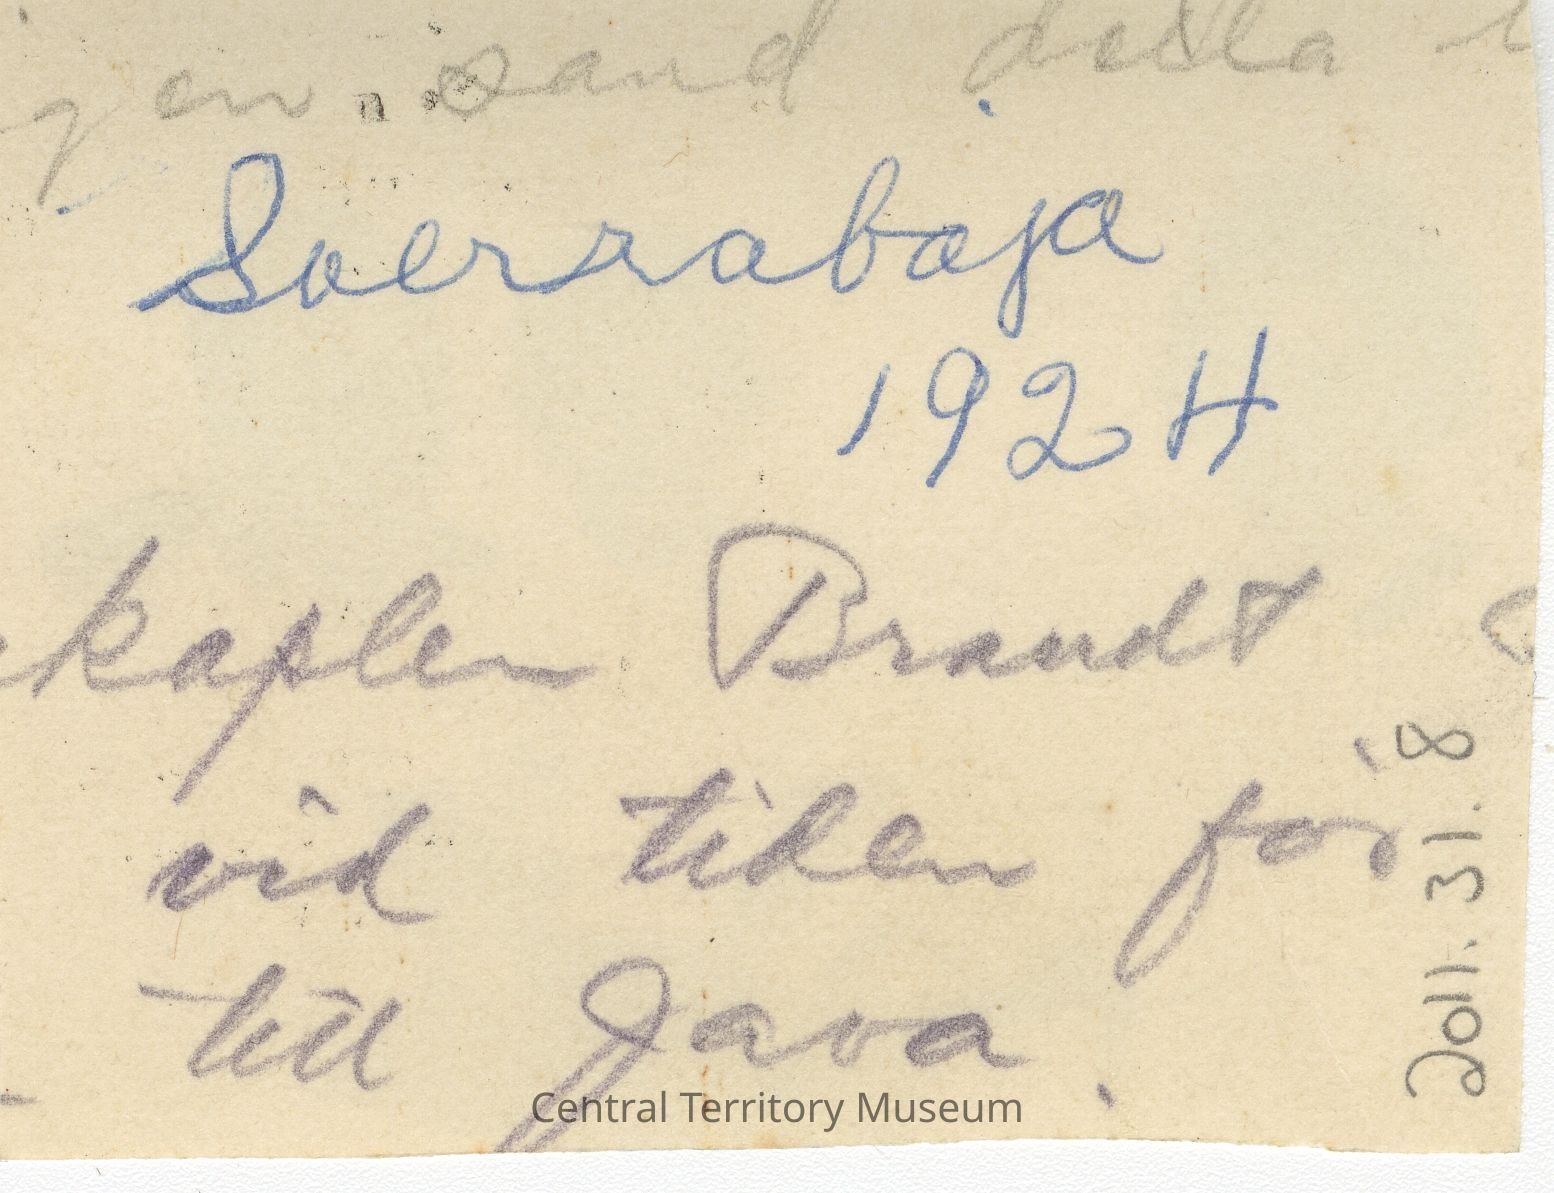 en sand detta
Soerrabaja
1924
kapten Brandt
vid tiden för
till Java.
2011.31.8
Central Territory Museum